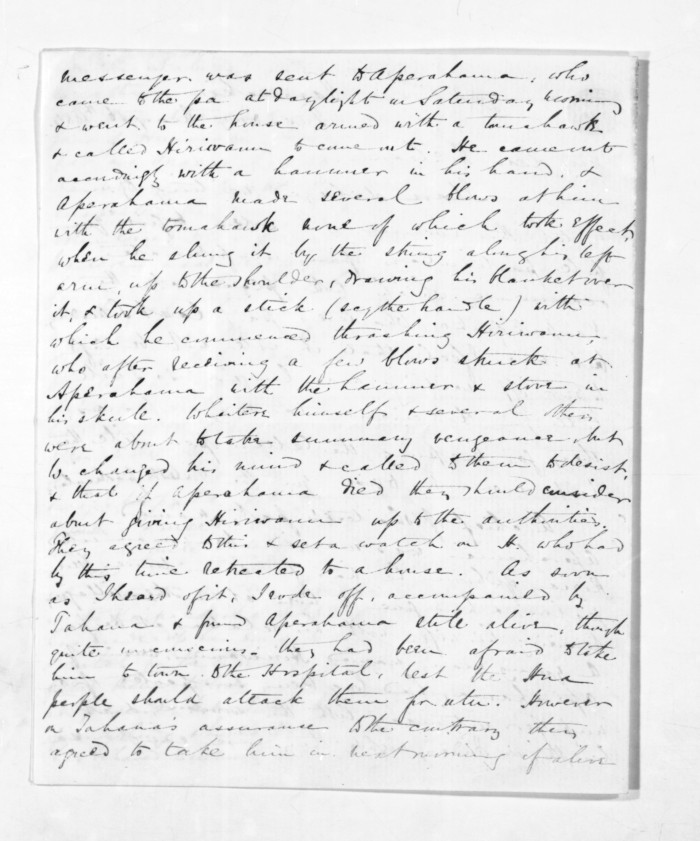 messenger was sent to Aperahama, who
came to the pa at daylight on Saturday morning
& went to the house armed with a tomahawk
& called Hiriwanu to come out. He came out
accordingly with a hammer in his hand, &
Aperahama made several blows at him
with the tomahawk none of which took effect,
when he slung it by the string along his left
arm, up to the shoulder, drawing his blanket over
it, & took up a stick (scythe handle) with
which he commenced thrashing Hiriwanu,
who after receiving a few blows struck at
Aperahama with the hammer & stove in
his skull. himself & several others
were about to take summary vengeance, but
W. changed his mind & called to them to desist,
& that if Aperahama died they should consider
about giving Hiriwanu up to the authorities.
They agreed to this & set a watch on H. who had
by this time retreated to a house. As soon
as I heard of it, I rode off, accompanied by
Tahana & found Aperahama still alive, though
quite unconscious. they had been afraid to take
him to town to the Hospital, lest the
people should attack them for utu. However
on Tahana's assurance to the contrary they
agreed to take him in next morning if alive